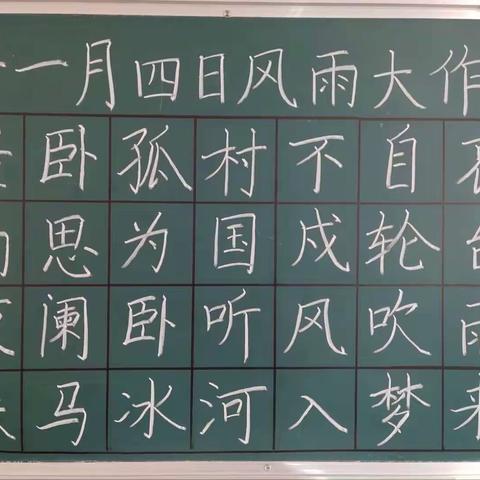 一月四日风雨大作
卧孤村不自哀
尚思为国戍轮台
夜阑卧听风吹雨
铁马冰河入梦来